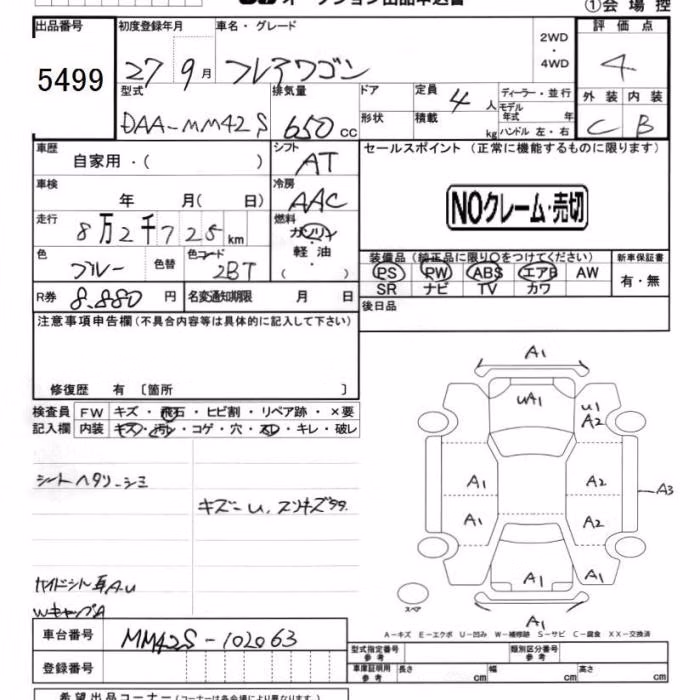 オークション出品申込書
①会場控
出品番号
5499
初度登録年月
27 9月
車名・グレード
フレアワゴン
2WD
・
4WD
評価点
4
型式
DAA-MM42S
排気量
650 cc
ドア
定員
4 人
ディーラー・並行
モデル年式 年
形状
積載 kg
ハンドル 左・右
外装 内装
C B
車歴
自家用・( )
シフト
AT
セールスポイント (正常に機能するものに限ります)
車検
年 月( 日)
冷房
AAC
NOクレーム・売切
走行
8万2千725km
燃料
ガソリン
軽油
( )
色
ブルー
色替
色コード
2BT
装備品 (純正品に限り○をつけてください)
PS PW ABS エアB AW
SR ナビ TV カワ
新車保証書
有・無
R券 8,880 円
名変通知期限 月 日
後日品
注意事項申告欄(不具合内容等は具体的に記入して下さい)
修復歴 有 〔箇所 〕
検査員 FW キズ・飛石・ヒビ割・リペア跡・×要
記入欄 内装 キズ・汚レ・コゲ・穴・スレ・キレ・破レ
シートヘタリ・シミ
キズ・U、スリキズ
A1
UA1
U1
A2
A1
A2
A3
A1
A2
A1
A1
A1
スペア
WキャップA
A-キズ E-エクボ U-凹み W-補修跡 S-サビ C-腐食 XX-交換済
車台番号
MM42S-102063
登録番号
型式指定番号
参考
類別区分番号
参考
車庫証明用
参考
長さ cm
幅 cm
高さ cm
希望出品コーナー(コーナーは各会場により異なります。)